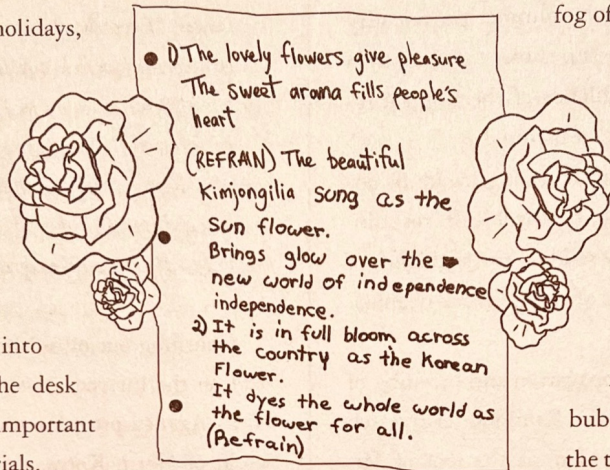 holidays,
fog of
1) The lovely flowers give pleasure
The sweet aroma fills people's
heart
(REFRAIN) The beautiful
Kimjongilia sung as the
Sun flower.
Brings glow over the
new world of independence
independence.
2) It is in full bloom across
the country as the Korean
Flower.
It dyes the whole world as
the flower for all.
(Refrain)
into
he desk
important
ials.
bub
the t